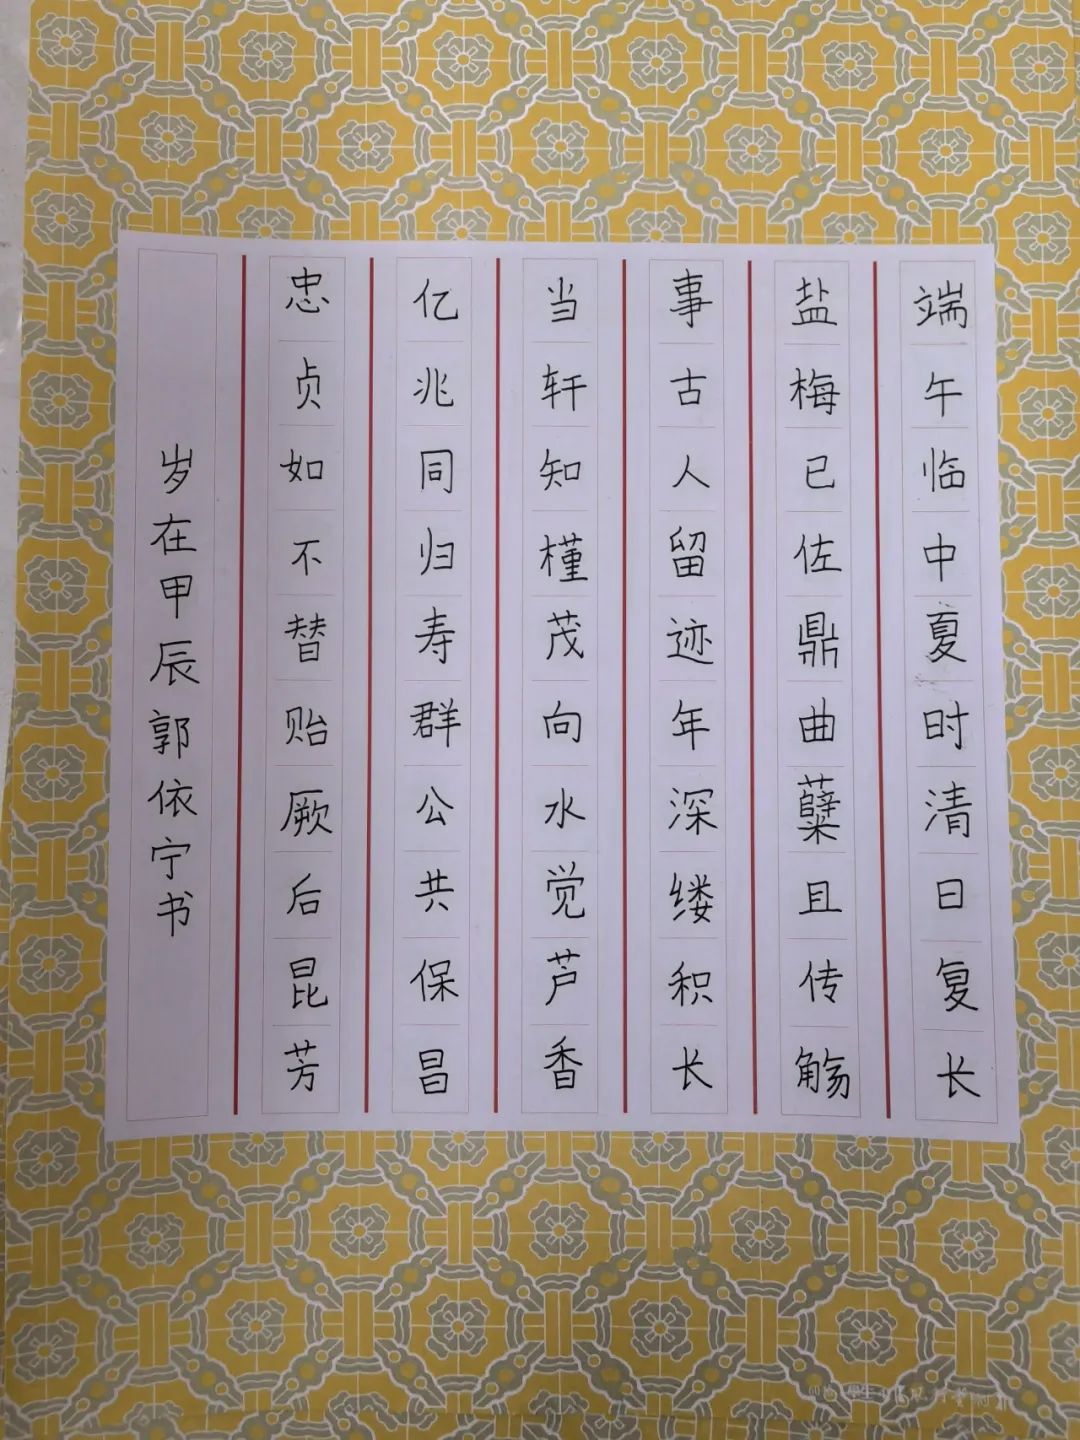 端午临中夏时清日复长
盐梅已佐鼎曲糵且传觞
事古人留迹年深缕积长
当轩知槿茂向水觉芦香
亿兆同归寿群公共保昌
忠贞如不替贻厥后昆芳
岁在甲辰郭依宁书